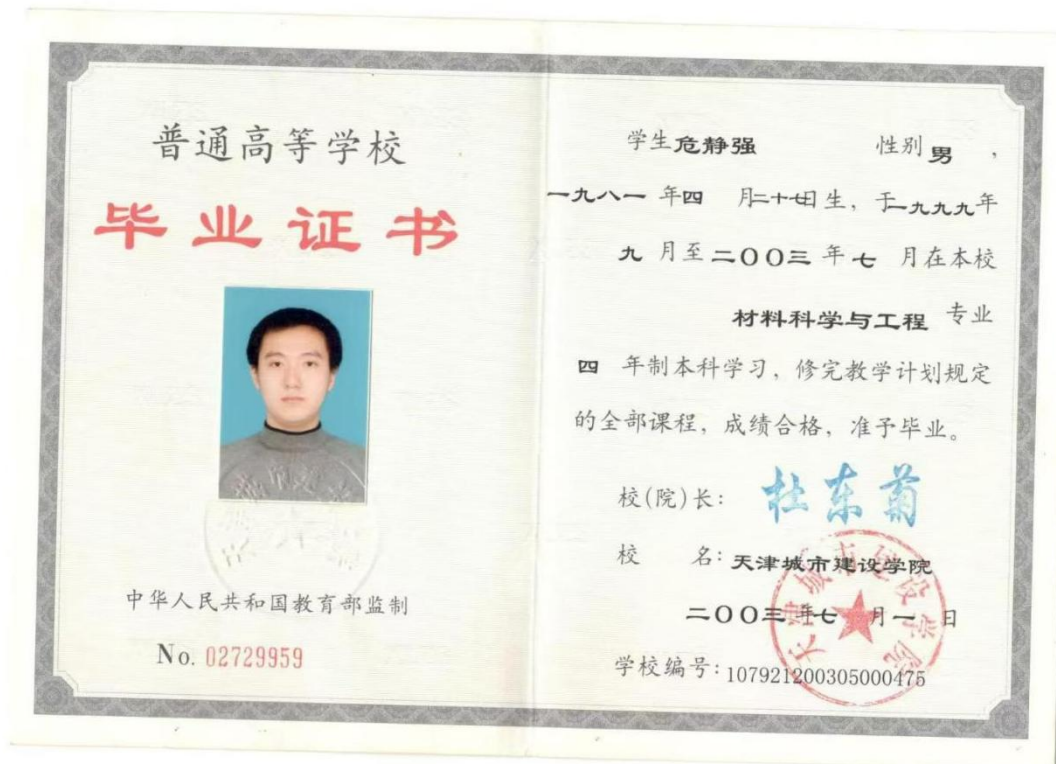 普通高等学校
毕业证书
中华人民共和国教育部监制
No. 02729959
学生危静强 性别男,
一九八一年四月二十七日生，于一九九九年
九月至二〇〇三年七月在本校
材料科学与工程专业
四年制本科学习，修完教学计划规定
的全部课程，成绩合格，准予毕业。
校(院)长：杜东菊
校名：天津城市建设学院
二〇〇三年七月一日
学校编号：107921200305000475
天津城市建设学院